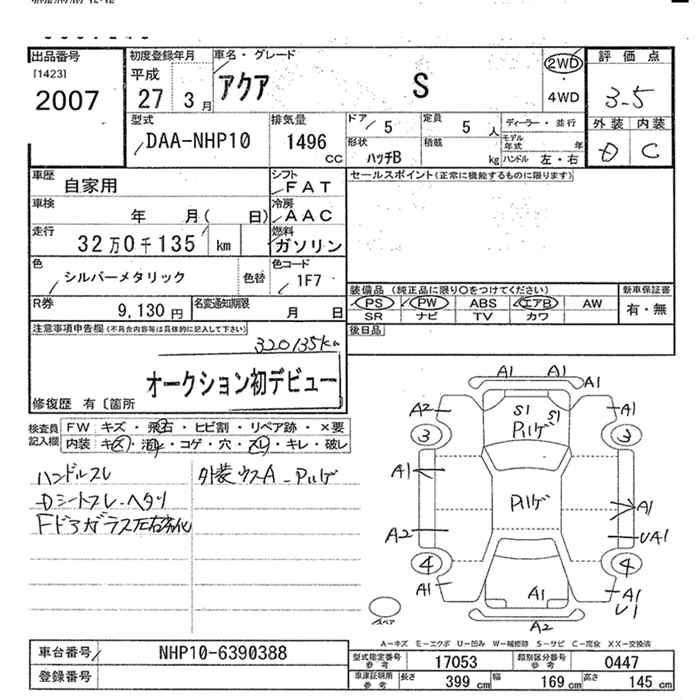 出品番号
[1423]
2007
初度登録年月
平成
27 3月
車名・グレード
アクア S
2WD
・
4WD
評価点
3.5
外装 内装
D C
型式
DAA-NHP10
排気量
1496
CC
ドア
5
定員
5 人
形状
ハッチB
積載
kg
ディーラー・並行
モデル年式 年
ハンドル 左・右
車歴
自家用
シフト
FAT
車検
年 月( 日)
冷房
AAC
走行
32万0千135 km
燃料
ガソリン
色
シルバーメタリック
色替
色コード
1F7
R券
9,130円
名変通知期限
月 日
セールスポイント(正常に機能するものに限ります)
装備品 (純正品に限り〇をつけてください)
PS PW ABS エアB AW
SR ナビ TV カワ
新車保証書
有・無
後日品
注意事項申告欄(不具合内容等は具体的に記入して下さい)
320135km
オークション初デビュー
修復歴 有〔箇所
検査員記入欄
FW キズ・飛石・ヒビ割・リペア跡・×要
内装 キズ・汚れ・コゲ・穴・スレ・キレ・破レ
ハンドルスレ
Dシートスレ・ヘタリ
Fドアガラス左右劣化
外装ウスA-Pハゲ
A1 A1 A1
A2 S1 S1 A1
Pハゲ
3 3
A1
Pハゲ
A1
A2 UA1
4 4
A1 A1 A1
U1
A2
スペア
A-キズ E-エクボ U-凹み W-補修跡 S-サビ C-腐食 XX-交換済
車台番号
NHP10-6390388
登録番号
型式指定番号 参考
17053
類別区分番号 参考
0447
車庫証明用 参考
長さ 399 cm
幅 169 cm
高さ 145 cm